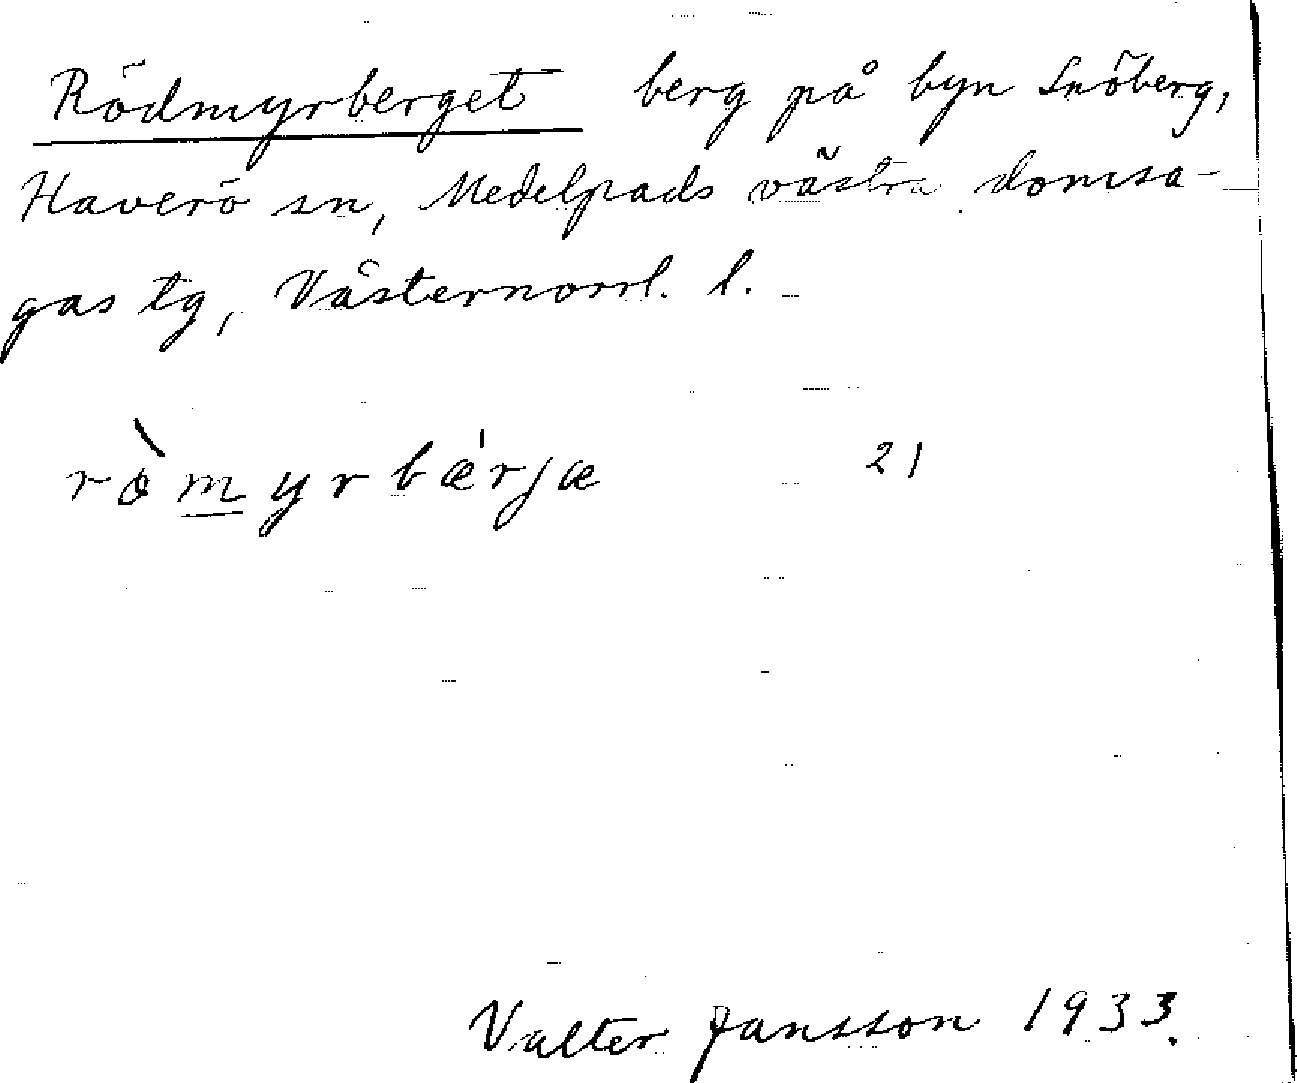 Rödmyrberget berg på byn Snöberg,
Haverö sn, Medelpads västra domsa-
gas tg, Västernorrl. l.
rò̀myrbæ'rjæ 21
Valter Jansson 1933.